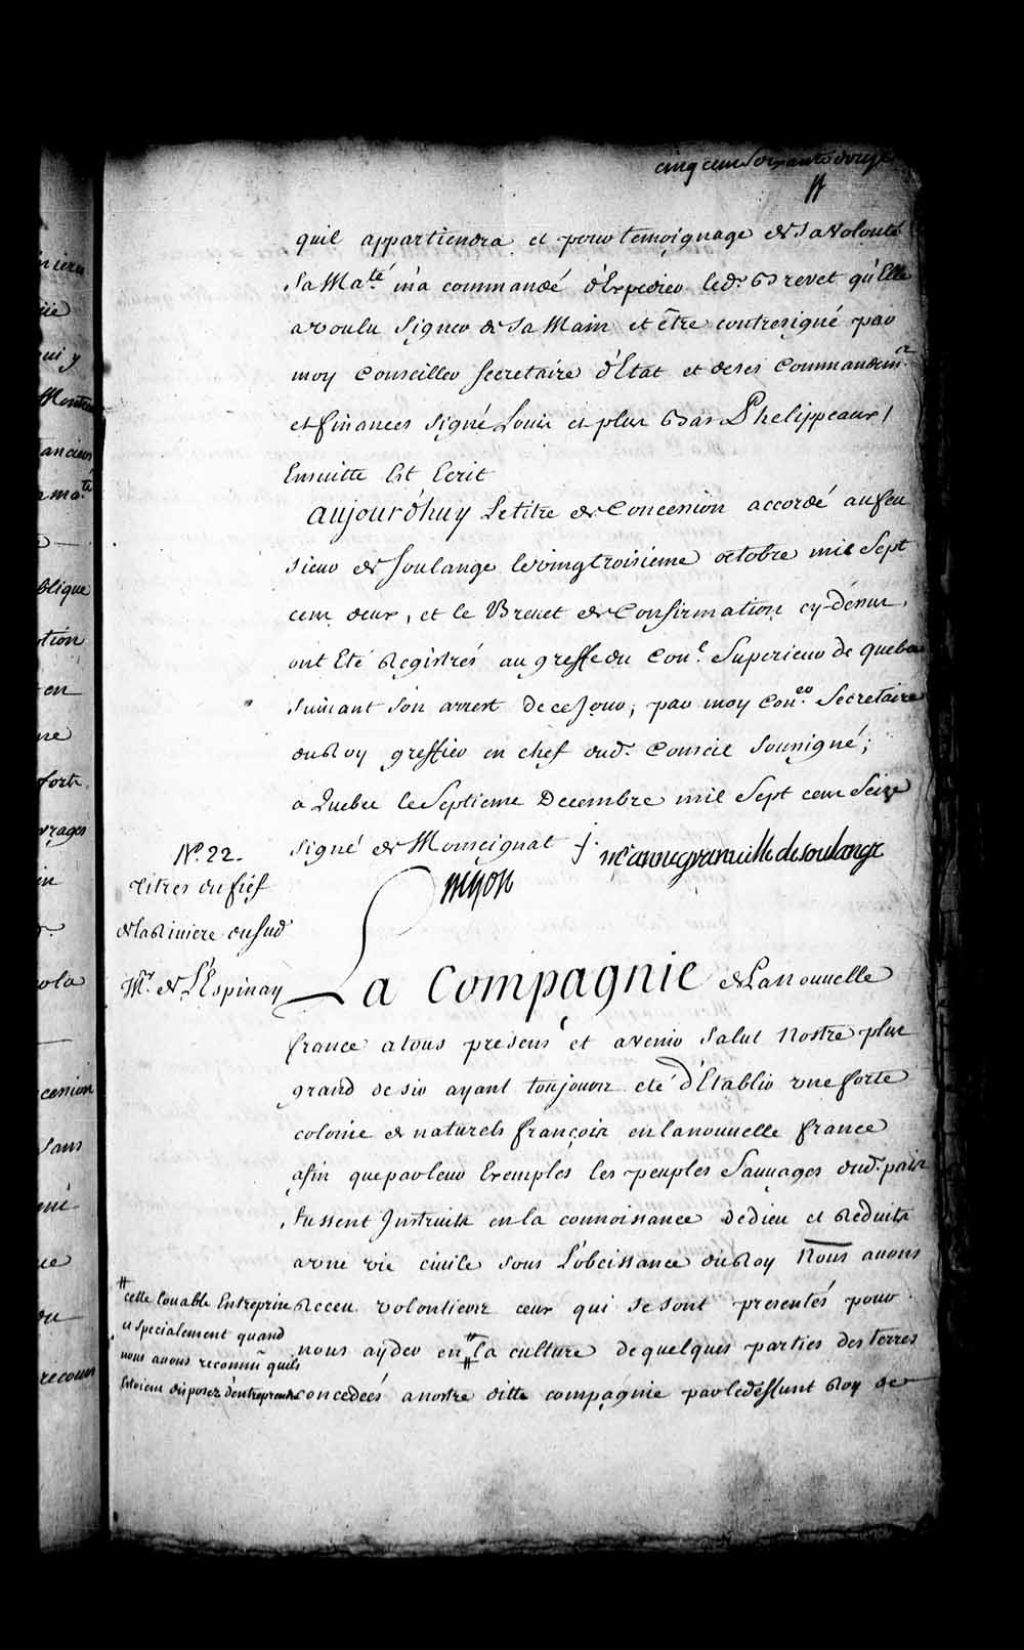 cinq cent soixante douze
quil appartiendra et pour temoignage de sa volonté
Sa Ma.té m'a commandé d'Expedier led.t Brevet qu'Elle
a voulu signer de sa Main et être contresigné par
moy Conseiller secretaire d'Etat et de ses Commandem.ts
et finances signé Louis et plus Bas Phelippeaux /
Ensuitte Est Ecrit
aujourd'huy Le titre de Concession accordé au feu
sieur de Soulange le vingt troisieme octobre mil Sept
cent deux, et le Brevet de Confirmation cy-dessus,
ont Eté Registrés au greffe du Con.l Superieur de quebec
suivant son arrest de ce Jour, par moy Con.er Secretaire
du Roy greffier en chef dud. Conseil soussigné;
a Quebec le Septieme Decembre mil Sept cent Seize
signé de Monseignat /.
m anne granuille de soulange
N.o 22.
titres du fief
de la Riviere du Sud
M.r de L'Espinay
La Compagnie de La nouvelle
france a tous presens et avenir Salut Nostre plus
grand desir ayant toujours eté d'Etablir une forte
colonie de naturels françois en la nouvelle france
afin que par leur Exemples les peuples Sauvages dud. païs
fussent Instruits en la connoissance de dieu et Reduits
a une vie civile sous L'obeissance du Roy Nous avons
Receu volontiers ceux qui se sont presentés pour
nous ayder en # La culture de quelques parties des terres
concedeés a nostre ditte compagnie par le deffunt Roy de
# cette louable Entreprise
et specialement quand
nous avons reconnu quils
Estoient disposez d'entreprendre